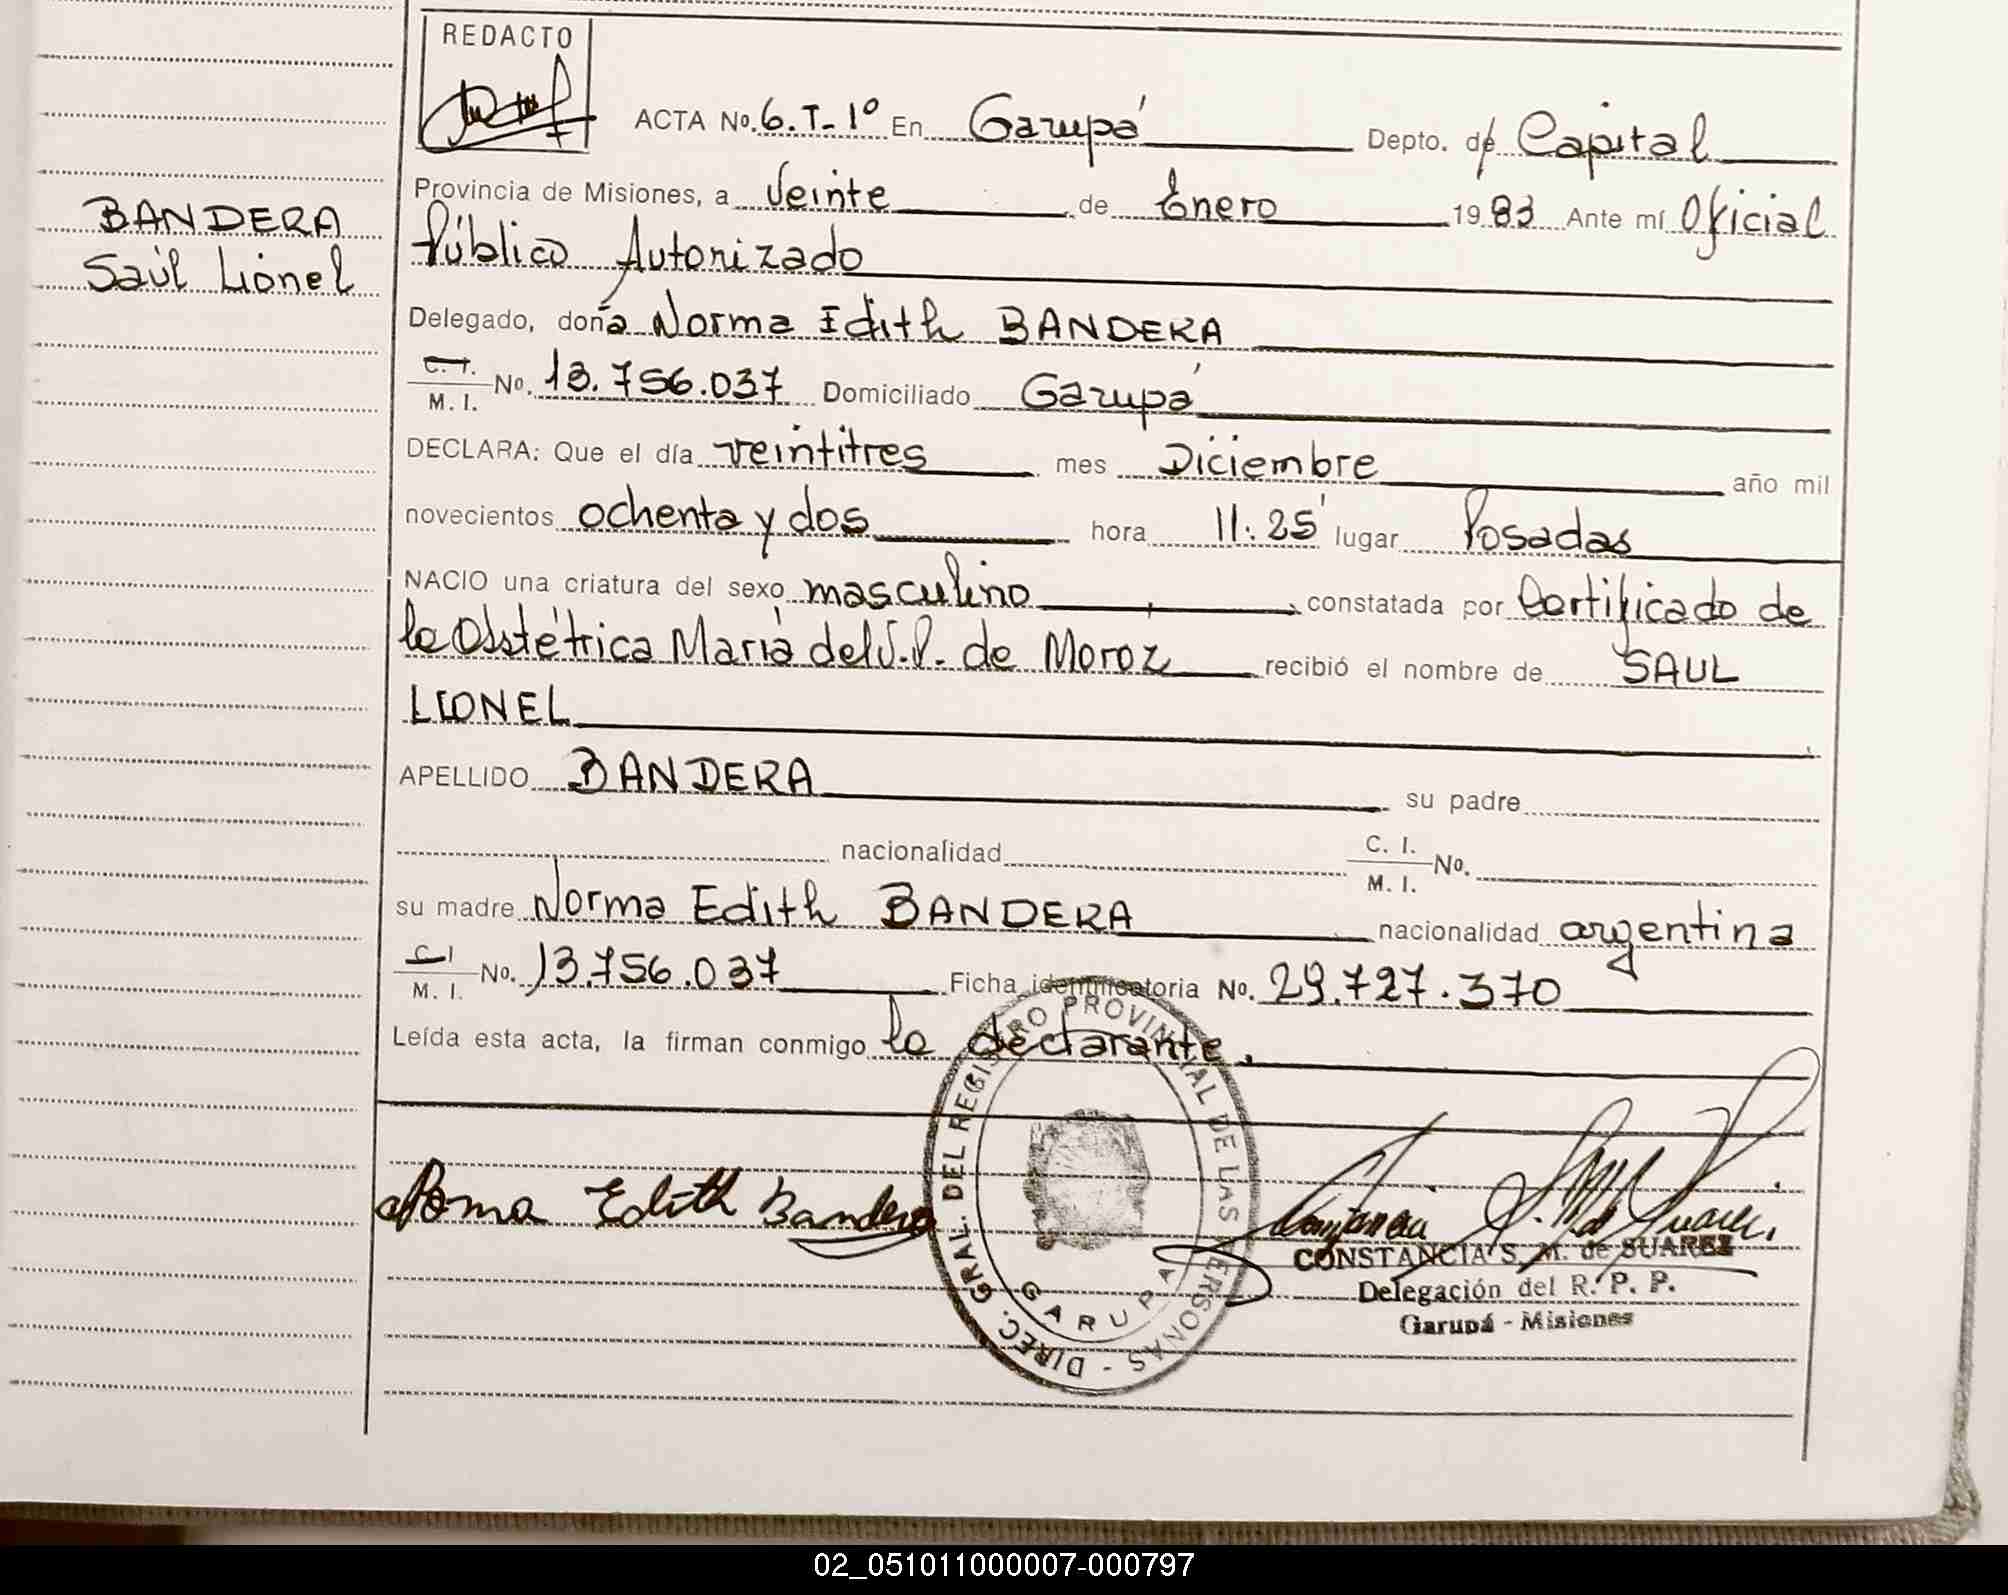 REDACTO
ACTA No. 6. T- 1º En Garupá Depto. de Capital
Provincia de Misiones, a Veinte de Enero 1983 Ante mí Oficial
Público Autorizado
BANDERA
Saúl Lionel
Delegado, doña Norma Edith BANDERA
C. I.
M. I. No. 13.756.037 Domiciliado Garupá
DECLARA: Que el día veintitres mes Diciembre año mil
novecientos ochenta y dos hora 11:25' lugar Posadas
NACIO una criatura del sexo masculino constatada por Certificado de
la Obstétrica María del S.P. de Moroz recibió el nombre de SAUL
LIONEL
APELLIDO BANDERA su padre
nacionalidad C. I.
M. I. No.
su madre Norma Edith BANDERA nacionalidad argentina
C. I.
M. I. No. 13.756.037 Ficha identificatoria No. 29.727.370
Leída esta acta, la firman conmigo la declarante.
Norma Edith Bandera
DIREC. GRAL. DEL REGISTRO PROVINCIAL DE LAS PERSONAS -
GARUPA
CONSTANCIA S. M. de SUAREZ
Delegación del R. P. P.
Garupá - Misiones
02_051011000007-000797